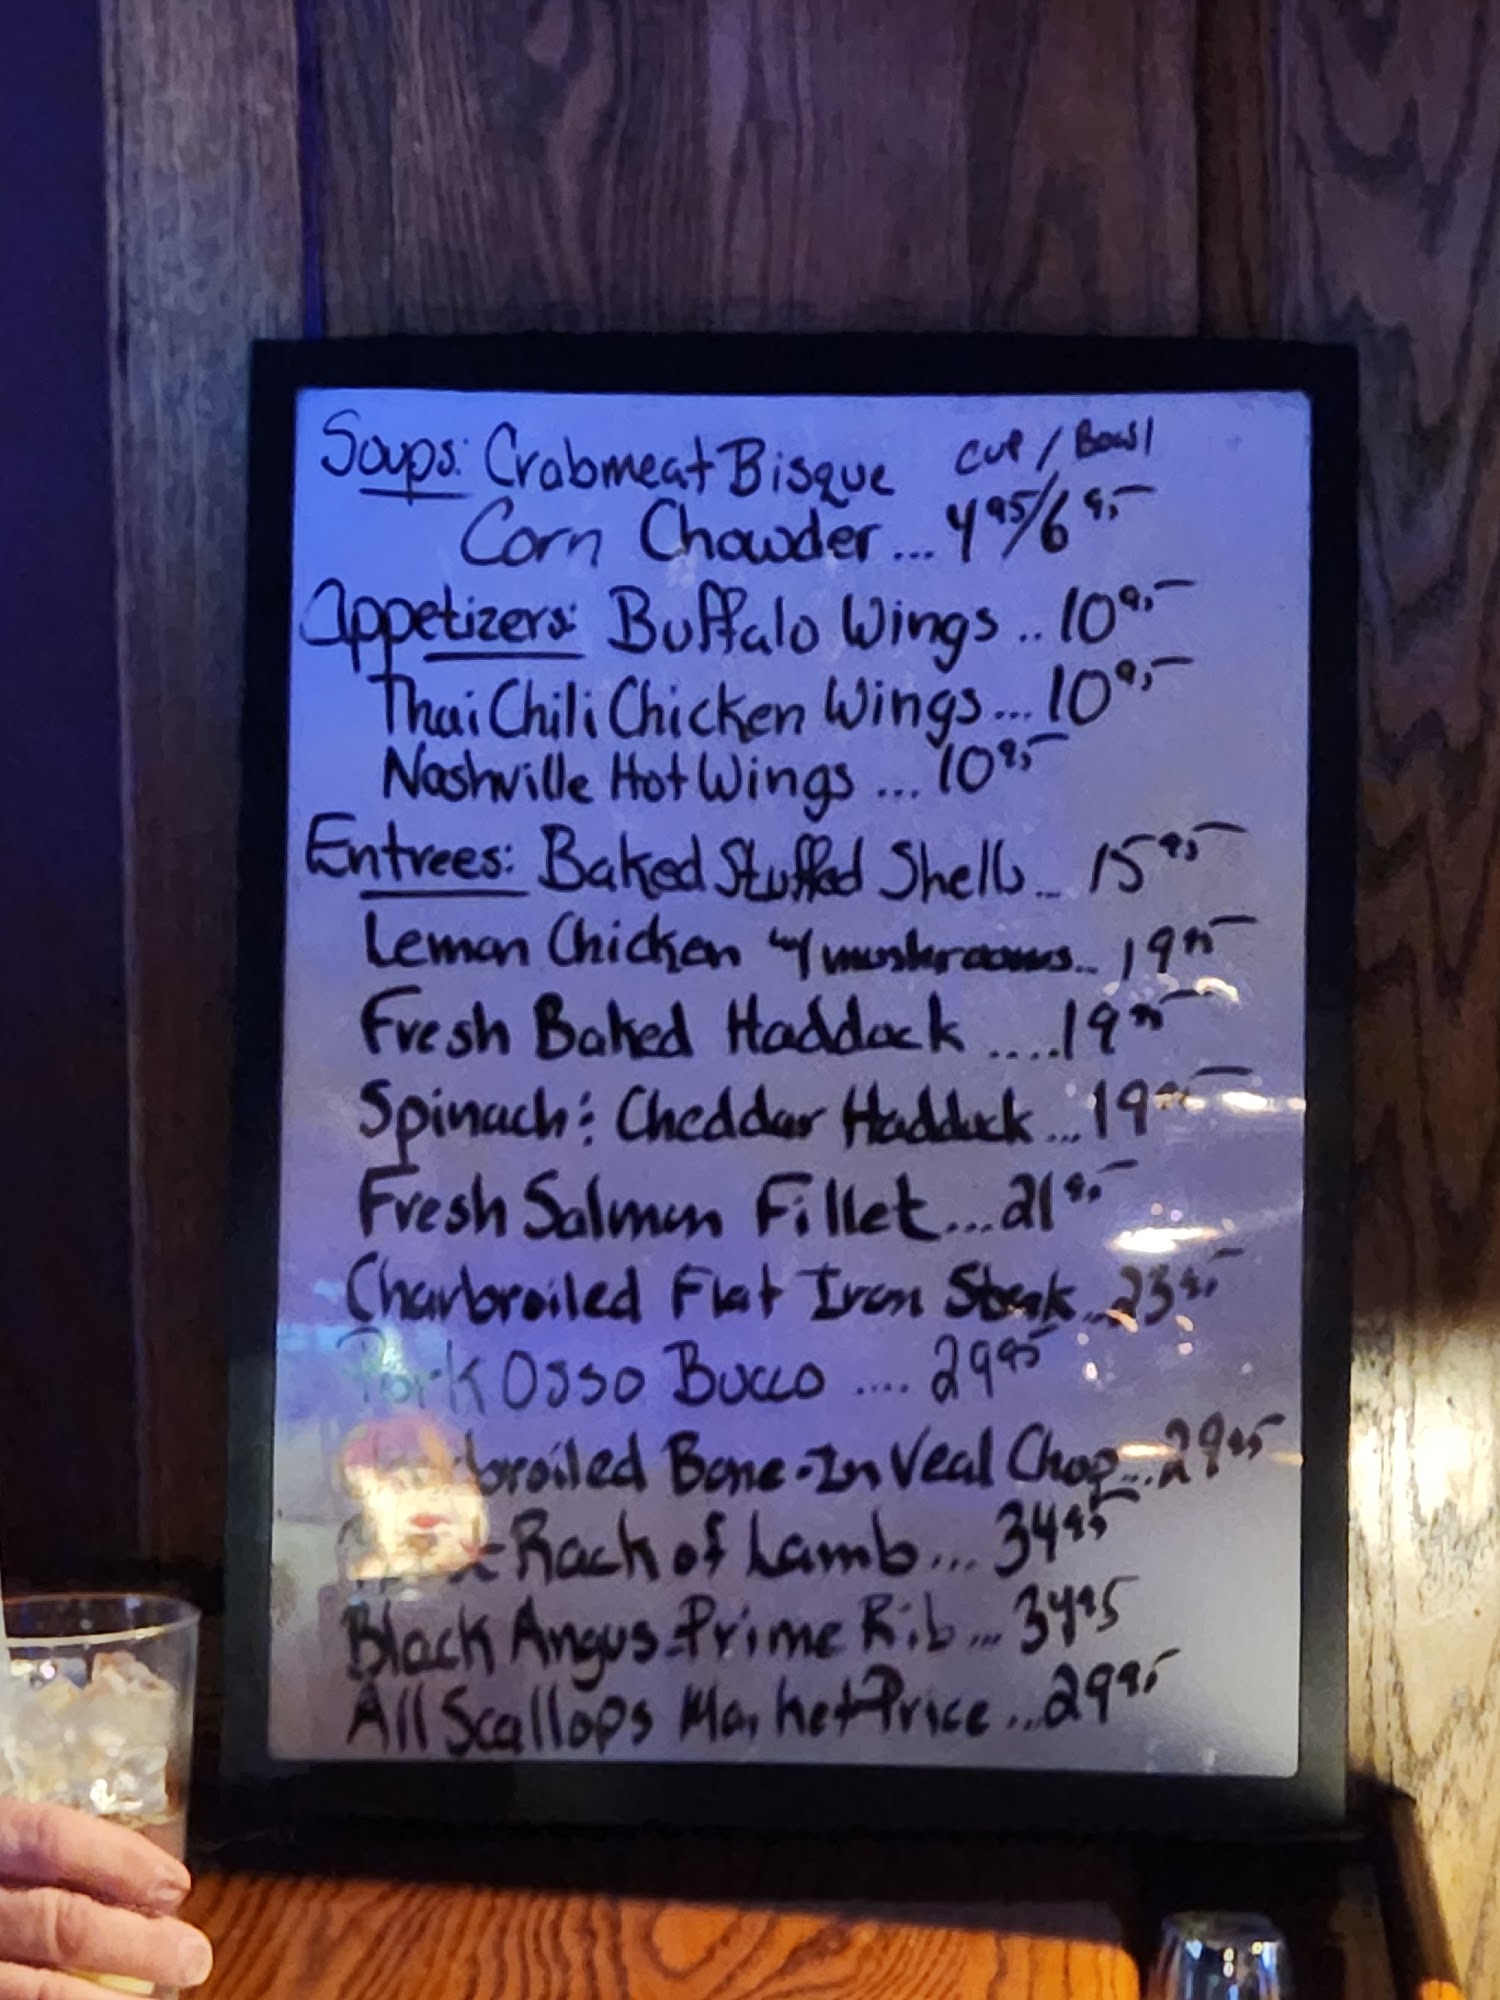 Soups: Crabmeat Bisque cup / Bowl
Corn Chowder ... 4 95/6 95
Appetizers: Buffalo Wings .. 10 95
Thai Chili Chicken Wings ... 10 95
Nashville Hot Wings ... 10 95
Entrees: Baked Stuffed Shells ... 15 95
Lemon Chicken w/ mushrooms .. 19 95
Fresh Baked Haddock .... 19 95
Spinach & Cheddar Haddock ... 19
Fresh Salmon Fillet ... 21 95
Charbroiled Flat Iron Steak ... 23 95
Pork Osso Bucco .... 29 95
broiled Bone-In Veal Chop ... 29 95
Rack of Lamb ... 34 95
Black Angus Prime Rib ... 34 95
All Scallops Market Price ... 29 95